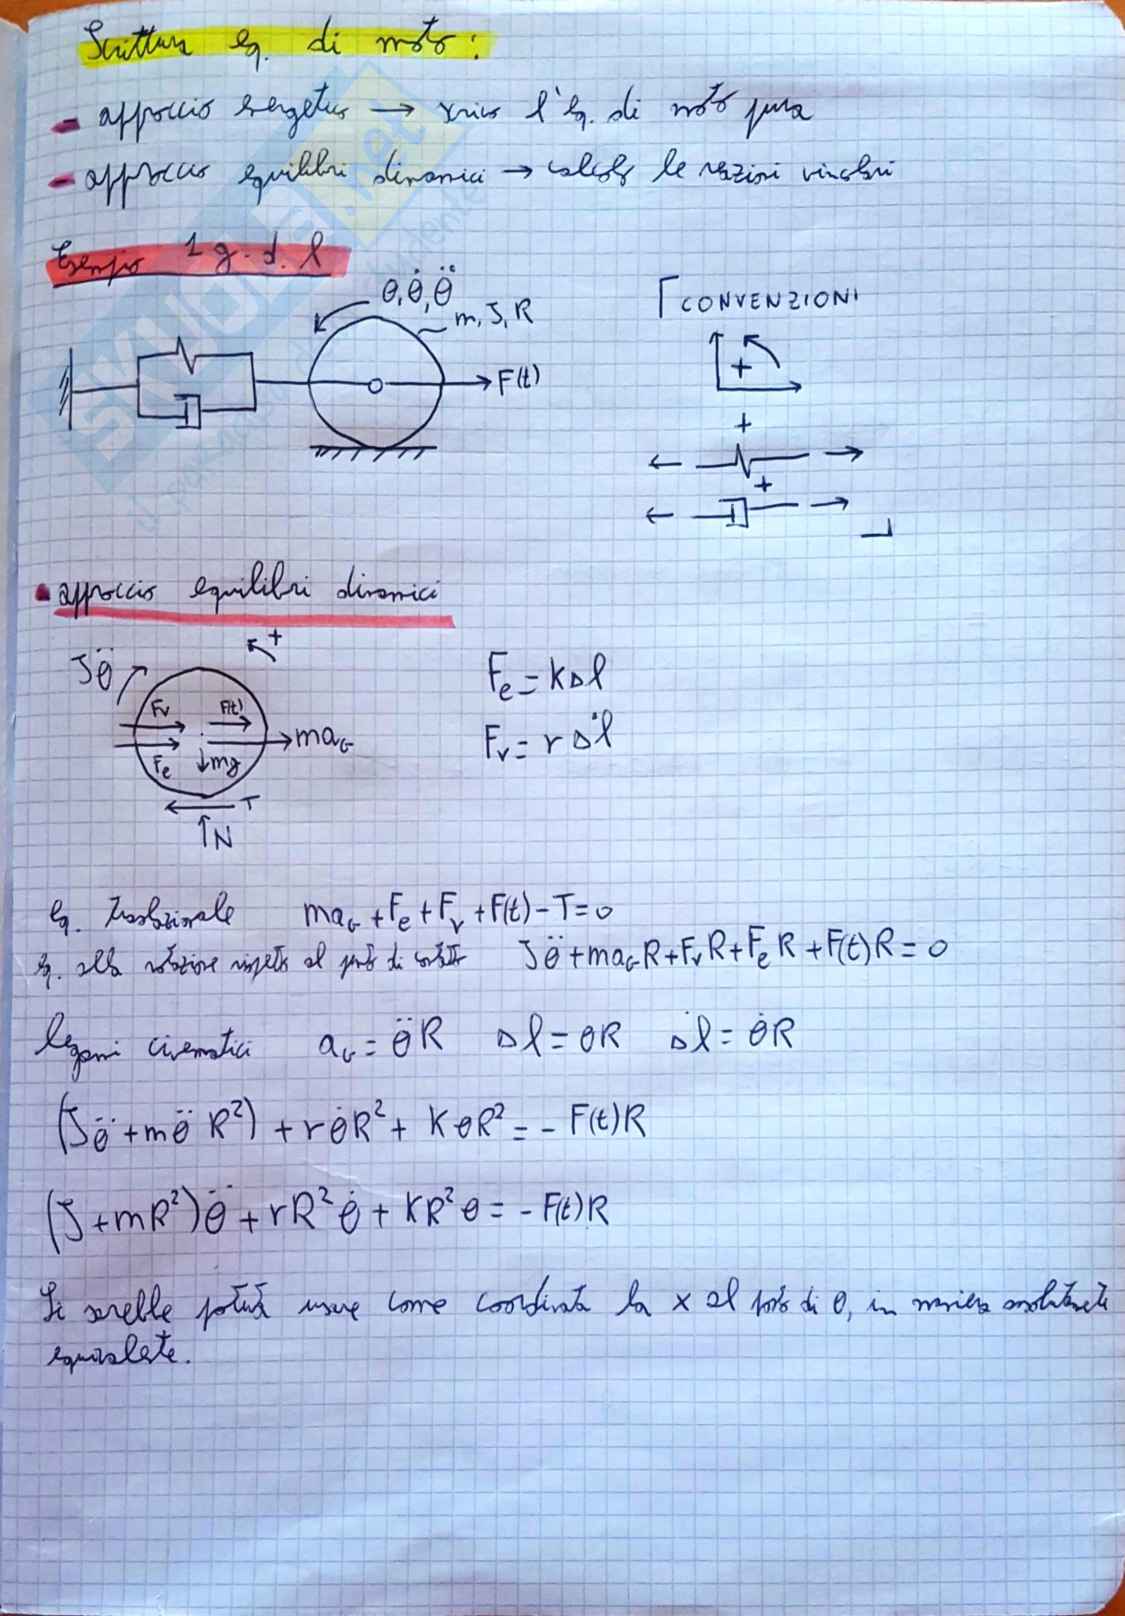 Scrittura eq. di moto:
- approccio energetico → scrivo l'eq. di moto pura
- approccio equilibri dinamici → calcolo le reazioni vincolari
Esempio 1 g.d.l
θ, θ̇, θ̈
m, J, R
F(t)
CONVENZIONI
+
+
+
• approccio equilibri dinamici
Jθ̈
+
Fv F(t)
maG
Fe mg
T
N
Fe = KΔl
Fv = rΔl̇
eq. traslazionale maG + Fe + Fv + F(t) - T = 0
eq. alla rotazione rispetto al punto di contatto Jθ̈ + maG R + Fv R + Fe R + F(t) R = 0
legami cinematici aG = θ̈R Δl = θR Δl̇ = θ̇R
(Jθ̈ + mθ̈ R²) + rθ̇R² + KθR² = - F(t)R
(J + mR²)θ̈ + rR²θ̇ + KR²θ = - F(t)R
Si sarebbe potuta usare come coordinata la x al posto di θ, in maniera assolutamente
equivalente.
SKUOLA.net